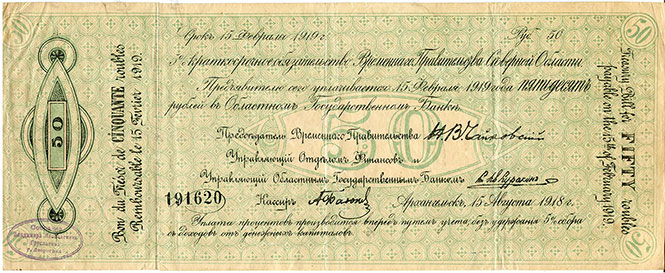 50
Срокъ 15 Февраля 1919 г.
Руб. 50
5% краткосрочное обязательство Временнаго Правительства Сѣверной Области
Предъявителю сего уплачивается 15 Февраля 1919 года пятьдесятъ
рублей въ Областномъ Государственномъ Банкѣ
Предсѣдатель Временнаго Правительства Н.В. Чайковскій
50
Управляющій Отдѣломъ Финансовъ и
Управляющій Областнымъ Государственнымъ Банкомъ
191620
Кассиръ
Архангельскъ, 15 Августа 1918 г.
Уплата процентовъ производится впередъ путемъ учета, безъ удержанія 5% сбора
съ доходовъ отъ денежныхъ капиталовъ.
50
Bon du Trésor de CINQUANTE roubles
Remboursable le 15 Février 1919.
Treasury Bill for FIFTY roubles
payable on the 15th of February 1919.
50
50